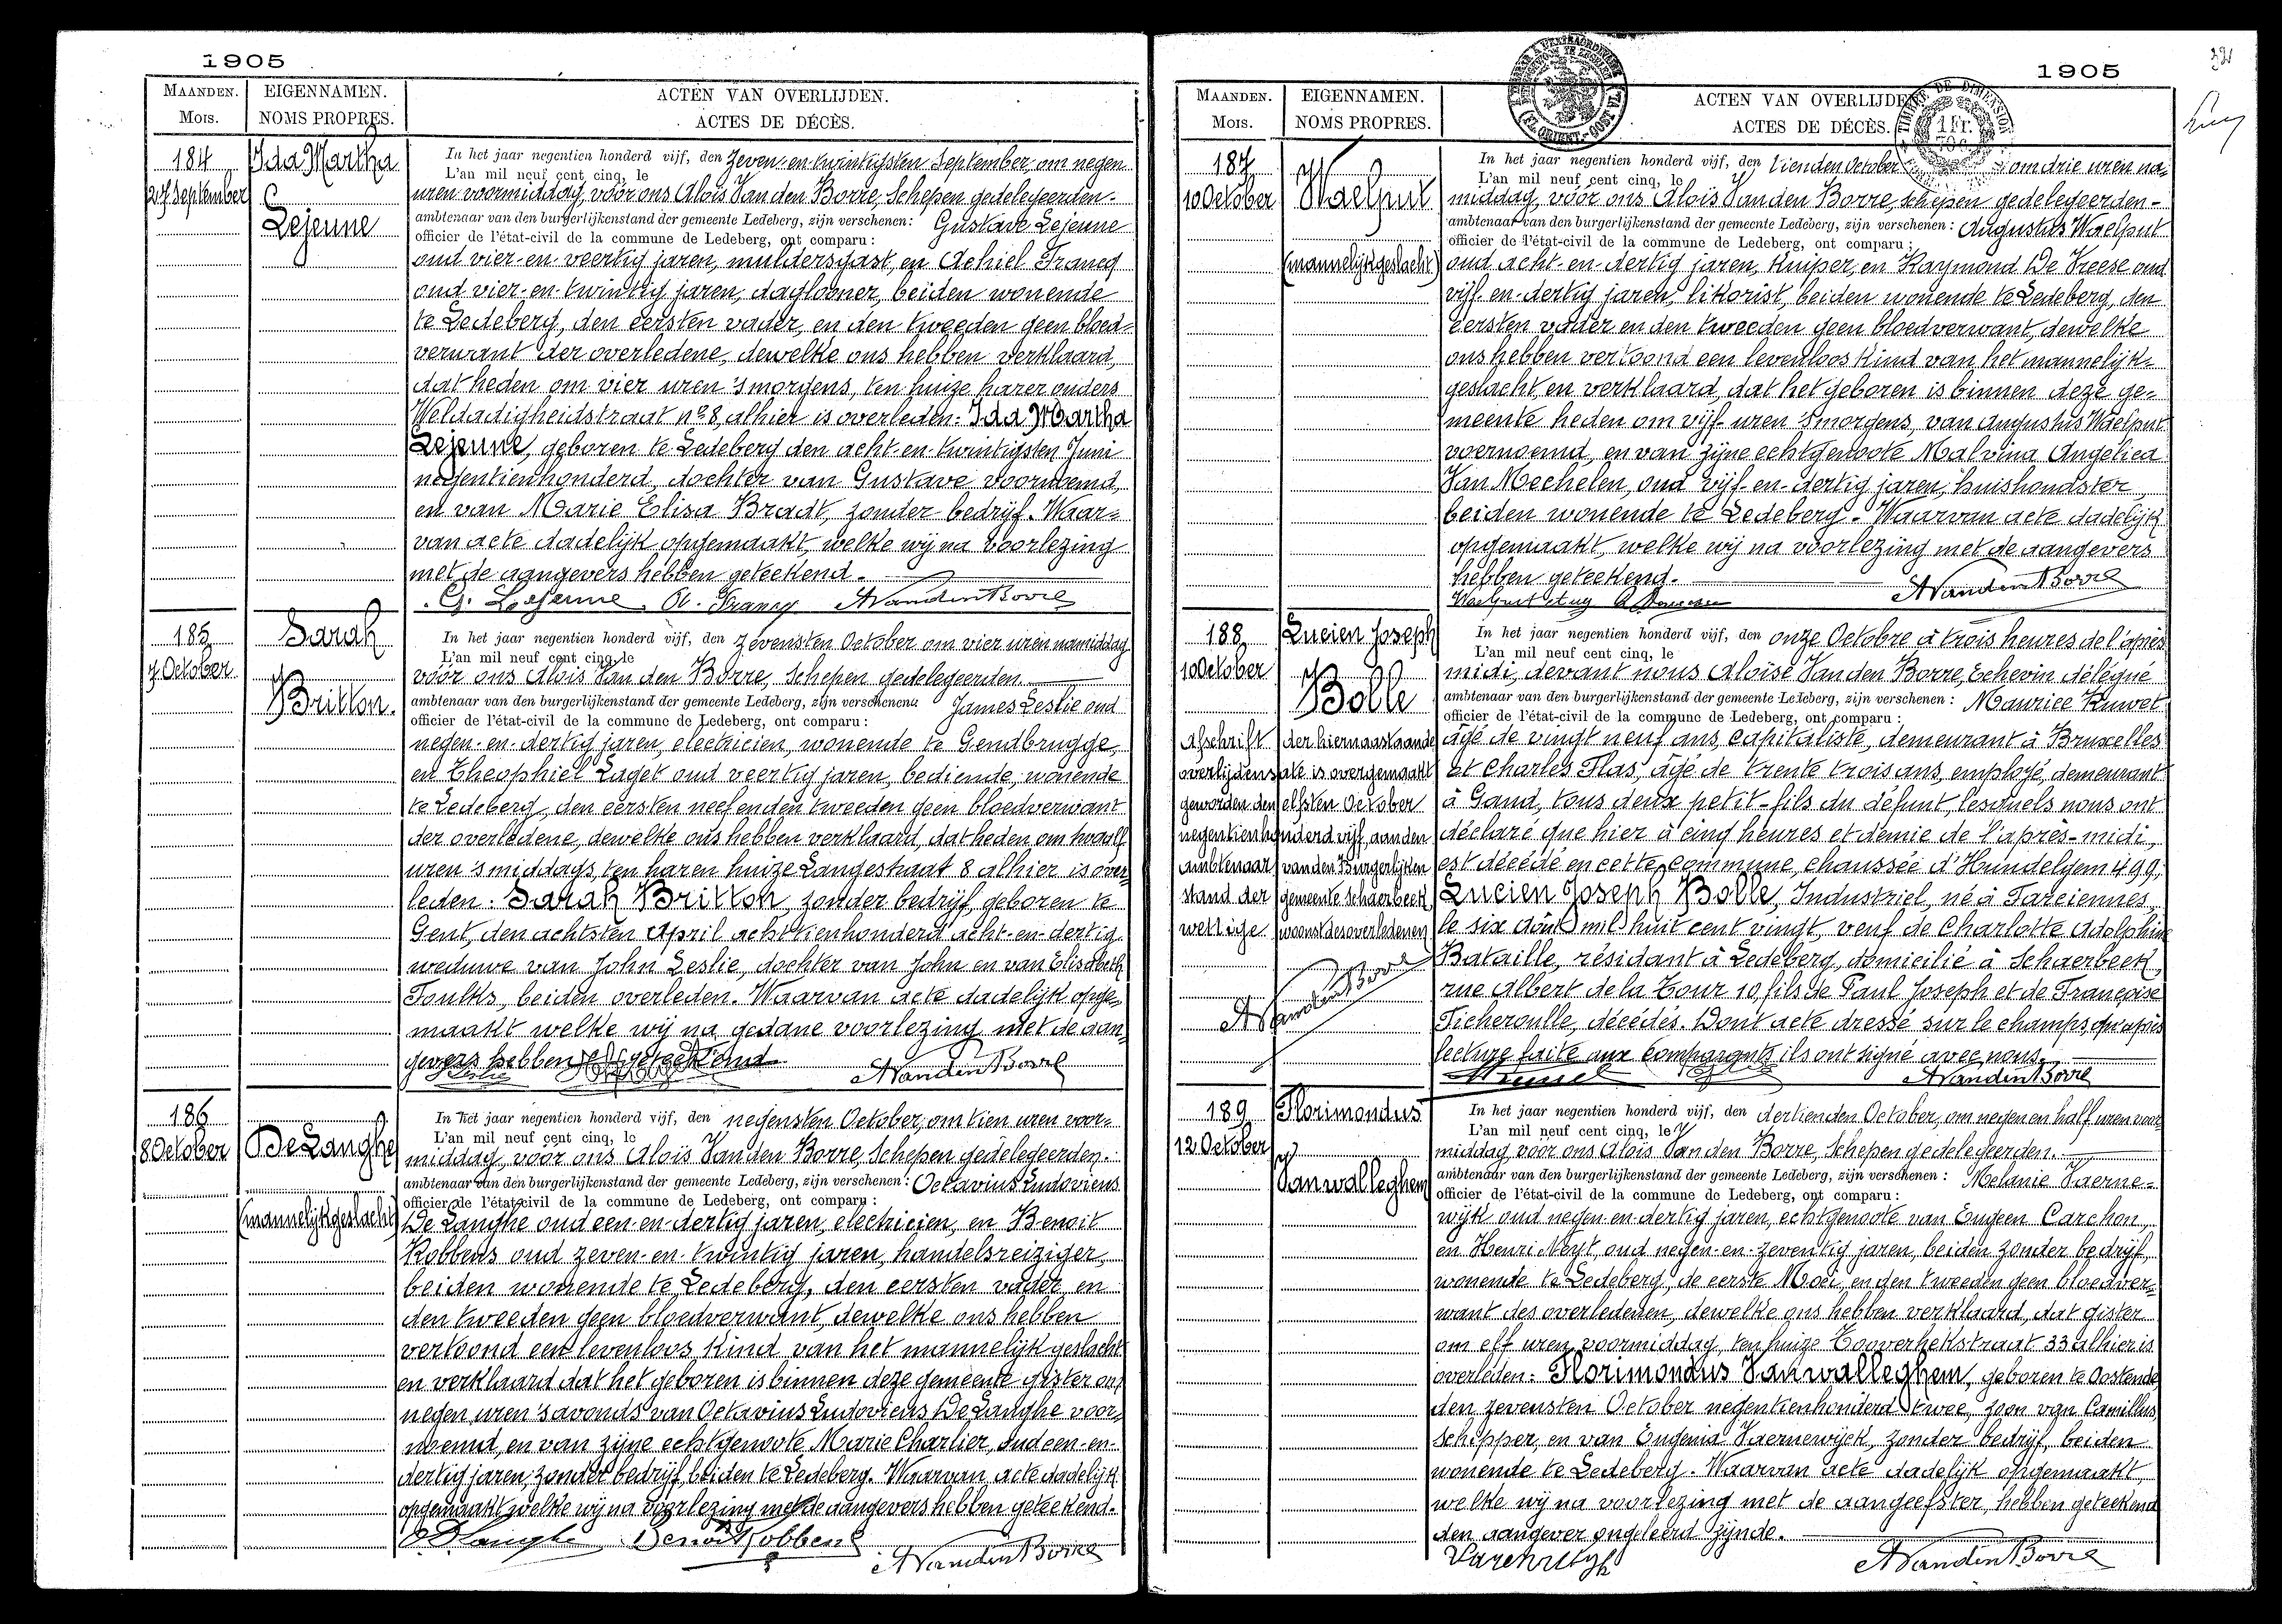 1905
MAANDEN. EIGENNAMEN. ACTEN VAN OVERLIJDEN.
Mois. NOMS PROPRES. ACTES DE DÉCÈS.
184
27 September
Ida Martha
Lejeune
In het jaar negentien honderd vijf, den zeven-en-twintigsten September, om negen
L'an mil neuf cent cinq, le
uren voormiddag, vóór ons Aloïs Van den Borre, Schepen gedelegeerden-
ambtenaar van den burgerlijkenstand der gemeente Ledeberg, zijn verschenen: Gustave Lejeune
officier de l'état-civil de la commune de Ledeberg, ont comparu:
oud vier-en-veertig jaren, muldersgast, en Achiel Francq
oud vier-en-twintig jaren, daglooner, beiden wonende
te Ledeberg, den eersten vader, en den tweeden geen bloed-
verwant der overledene, dewelke ons hebben verklaard,
dat heden om vier uren 's morgens, ten huize harer ouders
Weldadigheidstraat nº 8, alhier is overleden: Ida Martha
Lejeune, geboren te Ledeberg den acht-en-twintigsten Juni
negentienhonderd, dochter van Gustave voornoemd,
en van Marie Elisa Bradt, zonder bedrijf. Waar-
van acte dadelijk opgemaakt, welke wij na voorlezing
met de aangevers hebben geteekend.
G. Lejeune A. Francq AVandenBorre
185
7 October
Sarah
Britton.
In het jaar negentien honderd vijf, den zevensten October om vier uren namiddag
L'an mil neuf cent cinq, le
vóór ons Aloïs Van den Borre, Schepen gedelegeerden
ambtenaar van den burgerlijkenstand der gemeente Ledeberg, zijn verschenen: James Leslie oud
officier de l'état-civil de la commune de Ledeberg, ont comparu:
negen-en-dertig jaren, electricien, wonende te Gendbrugge,
en Theophiel Laget oud veertig jaren, bediende, wonende
te Ledeberg, den eersten neef en den tweeden geen bloedverwant
der overledene, dewelke ons hebben verklaard, dat heden om twaalf
uren 's middags, ten haren huize Langestraat 8 alhier is over-
leden: Sarah Britton, zonder bedrijf, geboren te
Gent, den achtsten April achttienhonderd acht-en-dertig
weduwe van John Leslie, dochter van John en van Elisabeth
Foulks, beiden overleden. Waarvan acte dadelijk opge-
maakt welke wij na gedane voorlezing met de aan-
gevers hebben geteekend
AVandenBorre
186
8 October
De Langhe
(mannelijkgeslacht)
In het jaar negentien honderd vijf, den negensten October, om tien uren voor-
L'an mil neuf cent cinq, le
middag, vóór ons Aloïs Van den Borre, Schepen gedelegeerden.
ambtenaar van den burgerlijkenstand der gemeente Ledeberg, zijn verschenen: Octavius Ludovicus
officier de l'état-civil de la commune de Ledeberg, ont comparu:
De Langhe oud een-en-dertig jaren, electricien, en Benoit
Robbens oud zeven-en-twintig jaren, handelsreiziger,
beiden wonende te Ledeberg, den eersten vader en
den tweeden geen bloedverwant, dewelke ons hebben
vertoond een levenloos kind van het mannelijk geslacht
en verklaard dat het geboren is binnen deze gemeente gister om
negen uren 's avonds van Octavius Ludovicus De Langhe voor-
noemd, en van zijne echtgenoote Marie Charlier, oud een-en-
dertig jaren, zonder bedrijf, beiden te Ledeberg. Waarvan acte dadelijk
opgemaakt welke wij na voorlezing met de aangevers hebben geteekend.
Benoit Robbens AVandenBorre
1905
MAANDEN. EIGENNAMEN. ACTEN VAN OVERLIJDEN
Mois. NOMS PROPRES. ACTES DE DÉCÈS.
TIMBRE DE DIMENSION
1 Fr.
187
10 October
Waelput
(mannelijkgeslacht)
In het jaar negentien honderd vijf, den tienden October om drie uren na-
L'an mil neuf cent cinq, le
middag, vóór ons Aloïs Van den Borre, schepen gedelegeerden-
ambtenaar van den burgerlijkenstand der gemeente Ledeberg, zijn verschenen: Augustus Waelput
officier de l'état-civil de la commune de Ledeberg, ont comparu:
oud acht-en-dertig jaren, kuiper, en Raymond De Vreese oud
vijf-en-dertig jaren, likorist, beiden wonende te Ledeberg, den
eersten vader en den tweeden geen bloedverwant, dewelke
ons hebben vertoond een levenloos kind van het mannelijk-
geslacht, en verklaard, dat het geboren is binnen deze ge-
meente heden om vijf uren 's morgens, van Augustus Waelput
voornoemd, en van zijne echtgenoote Malvina Angelica
Van Mechelen, oud vijf-en-dertig jaren, huishoudster,
beiden wonende te Ledeberg. Waarvan acte dadelijk
opgemaakt, welke wij na voorlezing met de aangevers
hebben geteekend.
Waelput Aug AVandenBorre
188
10 October
Lucien Joseph
Bolle
Afschrift der hiernaastaande
overlijdensakte is overgemaakt
geworden den elfsten October
negentienhonderd vijf, aan den
ambtenaar van den Burgerlijken
stand der gemeente Schaerbeek,
wettige woonst des overledenen
AVandenBorre
In het jaar negentien honderd vijf, den onze Octobre à trois heures de l'après
L'an mil neuf cent cinq, le
midi, devant nous Aloïse Van den Borre, Echevin délégué
ambtenaar van den burgerlijkenstand der gemeente Ledeberg, zijn verschenen: Maurice Ruwet
officier de l'état-civil de la commune de Ledeberg, ont comparu:
âgé de vingt neuf ans, capitaliste, demeurant à Bruxelles
et Charles Flas, âgé de trente trois ans, employé, demeurant
à Gand, tous deux petit-fils du défunt, lesquels nous ont
déclaré que hier à cinq heures et demie de l'après-midi,
est décédé en cette commune, chaussée d'Hundelgem 499,
Lucien Joseph Bolle, Industriel, né à Farciennes,
le six août mil huit cent vingt, veuf de Charlotte Adolphine
Bataille, résidant à Ledeberg, domicilié à Schaerbeek,
rue Albert de la Tour 10, fils de Paul Joseph et de Françoise
Ficheroulle, décédés. Dont acte dressé sur le champs, qu'après
lecture faite aux Comparants ils ont signé avec nous.
AVandenBorre
189
12 October
Florimondus
Vanwalleghem
In het jaar negentien honderd vijf, den dertienden October, om negen en half uren voor-
L'an mil neuf cent cinq, le
middag vóór ons Aloïs Van den Borre, Schepen gedelegeerden.
ambtenaar van den burgerlijkenstand der gemeente Ledeberg, zijn verschenen: Melanie Vaerne-
officier de l'état-civil de la commune de Ledeberg, ont comparu:
wijk oud negen-en-dertig jaren, echtgenoote van Eugeen Carchon,
en Henri Neyt, oud negen-en-zeventig jaren, beiden zonder bedrijf,
wonende te Ledeberg, de eerste Moei, en den tweeden geen bloedver-
want des overledenen, dewelke ons hebben verklaard, dat gister
om elf uren voormiddag, ten huize Tooverhekstraat 33 alhier is
overleden: Florimondus Vanwalleghem, geboren te Oostende
den zevensten October negentienhonderd twee, zoon van Camillus,
schipper, en van Eugenia Vaernewijck, zonder bedrijf, beiden
wonende te Ledeberg. Waarvan acte dadelijk opgemaakt,
welke wij na voorlezing met de aangeefster, hebben geteekend
den aangever ongeleerd zijnde.
AVandenBorre